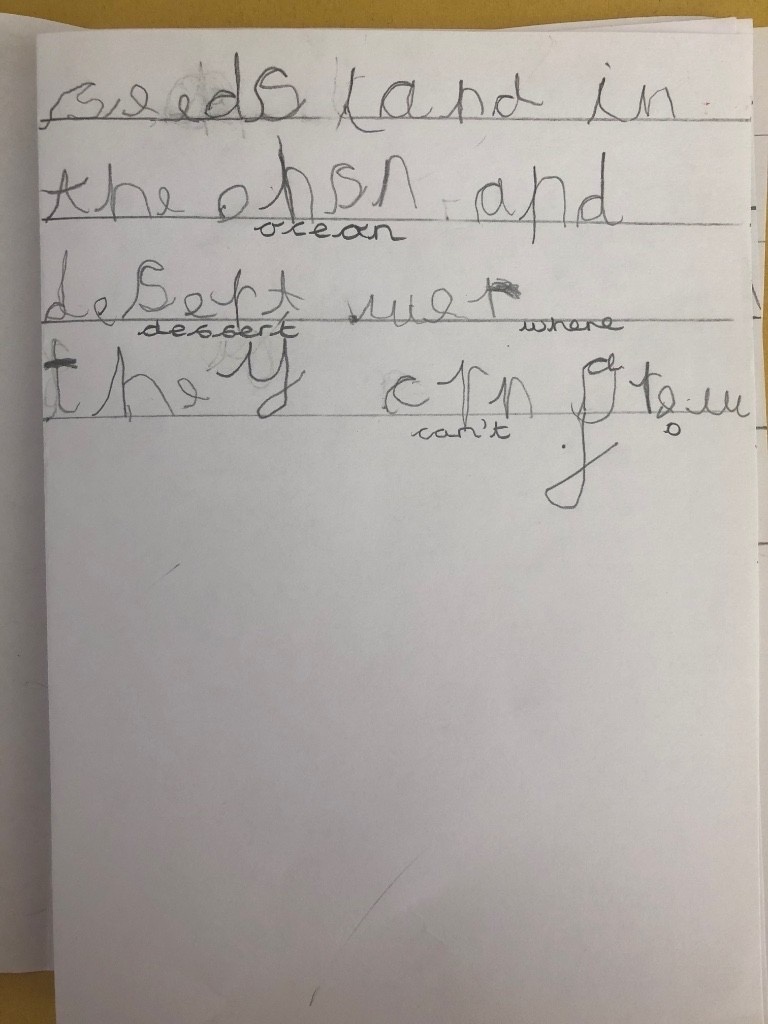 seeds land in
the ohsn and
ocean
desert wer
dessert where
they crn grew
can't o